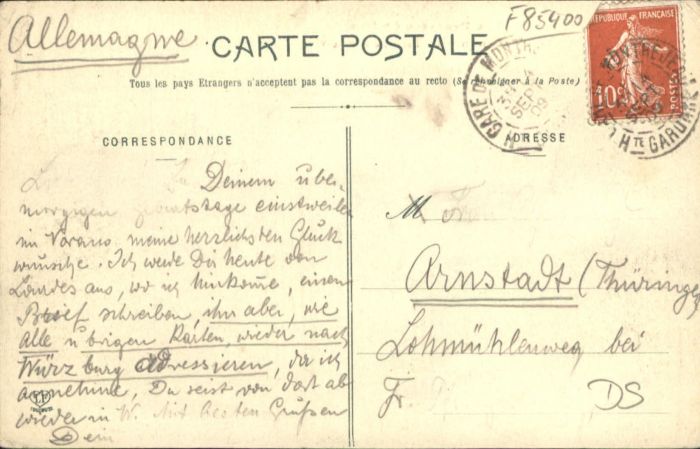 Allemagne
F85400
CARTE POSTALE
Tous les pays Etrangers n'acceptent pas la correspondance au recto (Se renseigner à la Poste)
CORRESPONDANCE
ADRESSE
REPUBLIQUE FRANÇAISE
10c
POSTES
GARE DE MONTR
SEPT
09
Hte GARONNE
Deinem über-
morgigen einstweilen
im Voraus meine herzlichsten Glück
wünsche. Ich werde Dir heute von
Lourdes aus, wo ich hinkomme, einen
Brief schreiben, ihn aber, wie
alle übrigen Karten, wieder nach
Würzburg adressieren, da ich
annehme, Du reist von dort ab
wieder in W. Mit besten Grüßen
Dein
Arnstadt (Thüringen
Lohmühlenweg bei
Fr.
DS